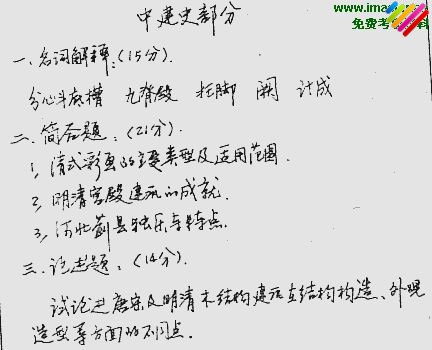 www.ima
免费考 科
中建史部分
一、名词解释:(15分).
分心斗底槽 九脊殿 柱脚 阙 计成
二、简答题:(21分).
1, 清式彩画的主要类型及适用范围.
2, 明清宫殿建筑的成就.
3, 河北蓟县独乐寺特点.
三、论述题:(14分).
试论述唐宋及明清木结构建筑在结构构造、外观
造型等方面的不同点.